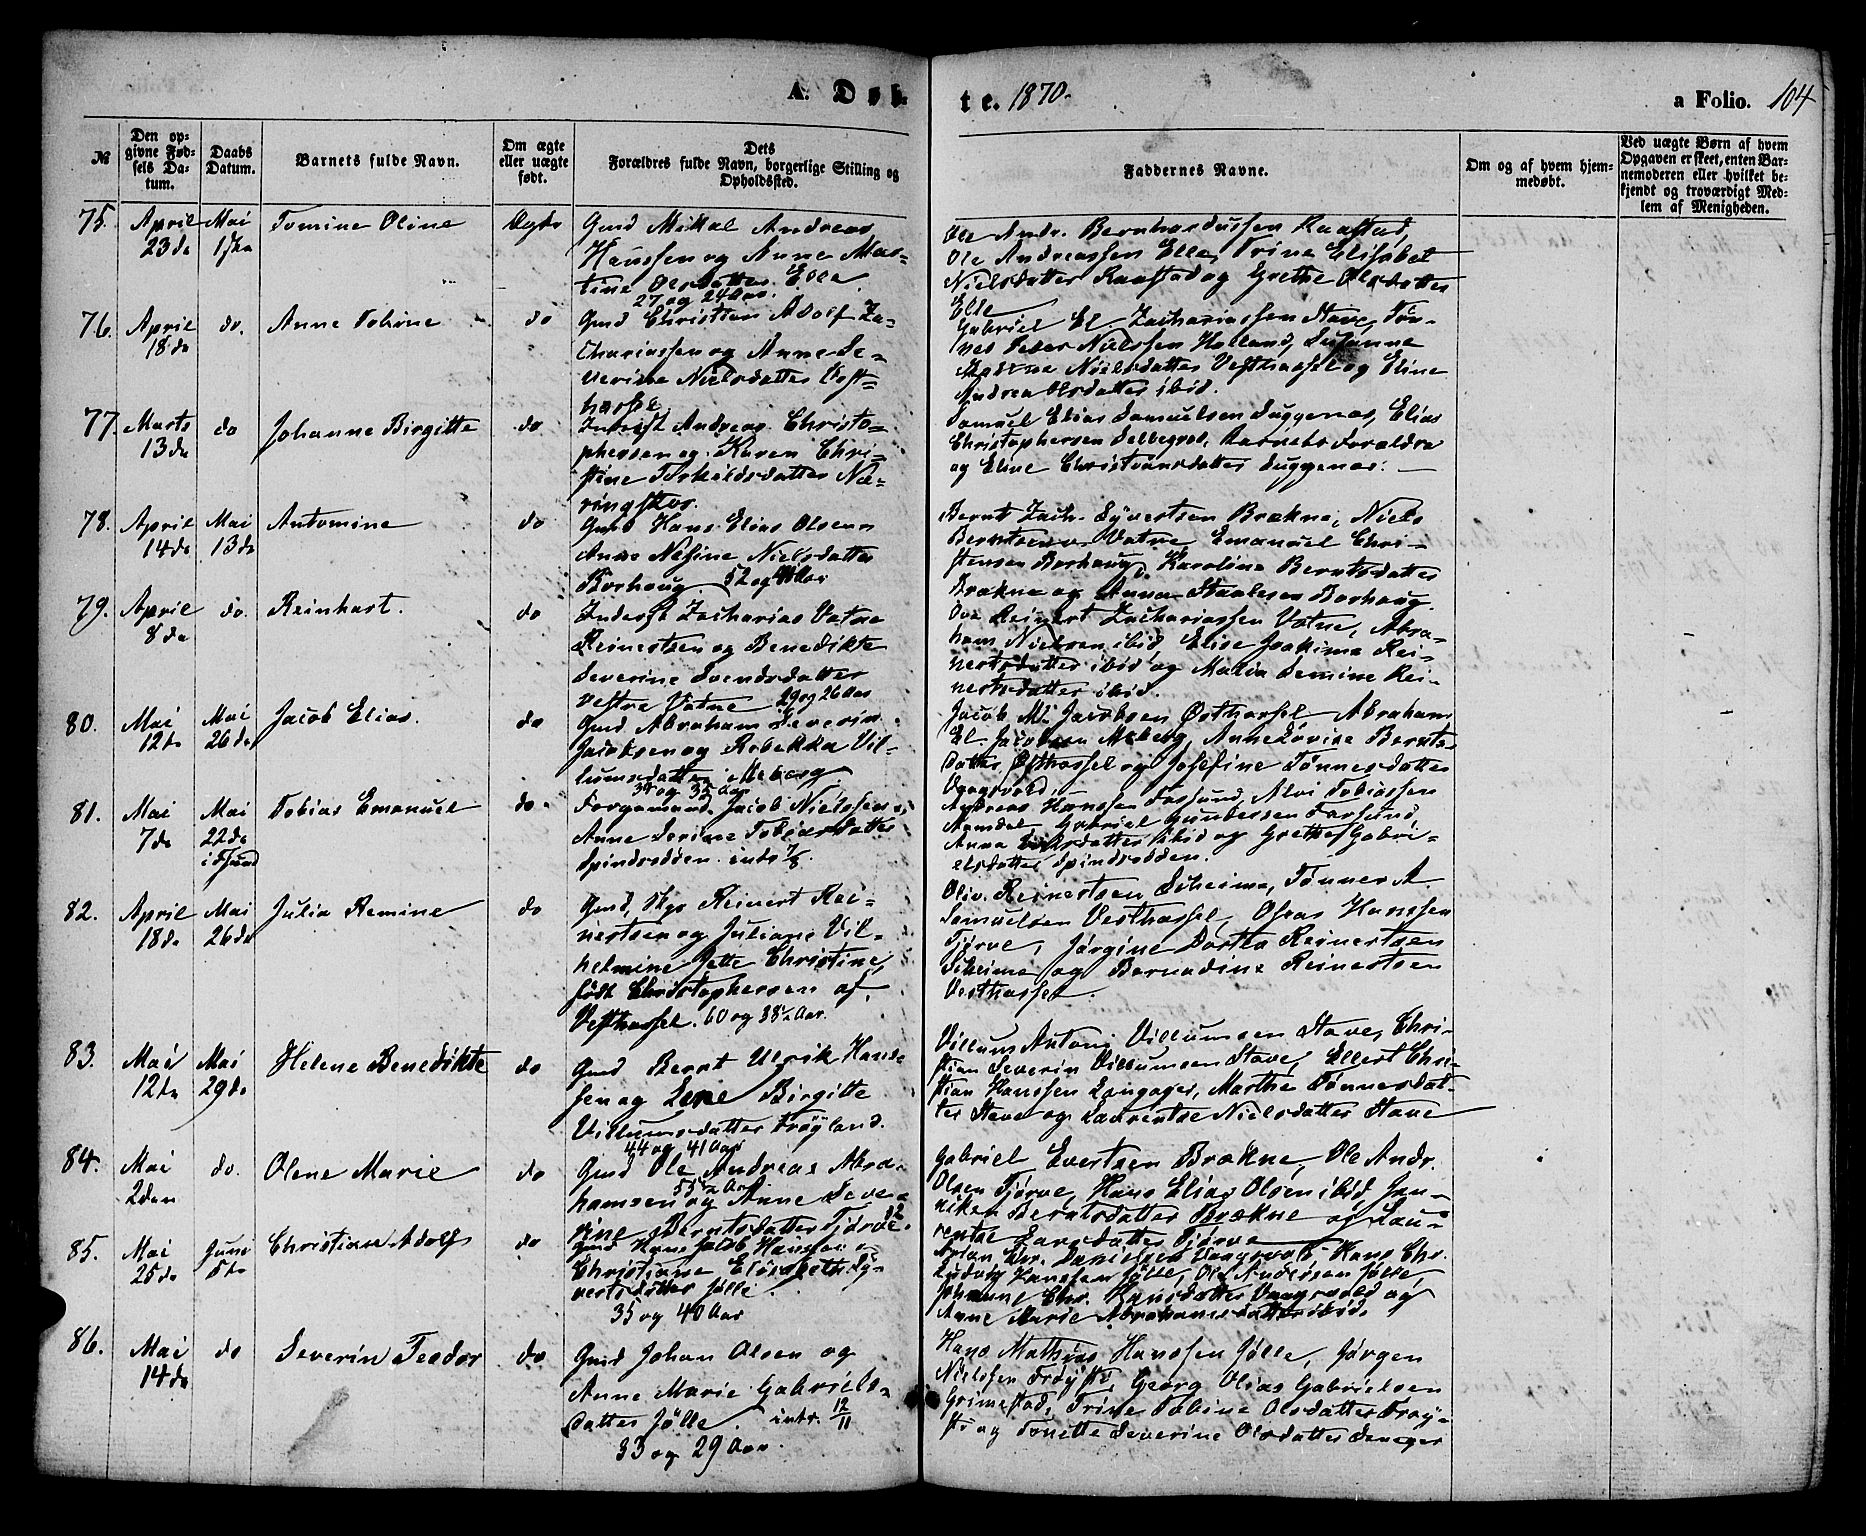 A. Døb-
te. 1870.
a Folio. 104
№
Den op-
givne Fød-
sels Da-
tum.
Daabs
Datum.
Barnets fulde Navn.
Om ægte
eller uægte
født.
Dets
Forældres fulde Navn, borgerlige Stilling og
Opholdssted.
Faddernes Navne.
Om og af hvem hjem-
medøbt.
Ved uægte Børn af hvem
Opgaven er skeet, enten Bar-
nemoderen eller hvilket be-
kjendt og troværdigt Med-
lem af Menigheden.
75. April Mai Tomine Oline Ægte Gmd Mikal Andreas
23de 1ste Hanssen og Anne Mar-
tine Olsdatter Elle
27 og 24 Aar.
Ole Andr. Bernhardussen Raastad,
Ole Andreassen Elle, Trine Elisabet
Nielsdatter Raastad og Grethe Olsdatter
Elle
76. April do. Anne Tobine do Gmd Christian Adolf Za-
18de chariassen og Anne Se-
verine Nielsdatter Vest-
hassel
Gabriel El. Zachariassen Stave, Tøn-
nes Peder Nielssen Holland, Susanne
Nielsdatter Vesthassel og Eline
Andrea Olsdatter ibid.
77. Marts do Johanne Birgitte do Inderst Andreas Christo-
13de phersen og Karen Chri-
stine Torkildsdatter Næ-
ringskos.
Samuel Elias Samuelsen Duggenas, Elias
Christophersen Sellegrod, Barnets Forældre
og Eline Christiansdatter Duggenas.
78. April Mai Antomine do Gmd Hans Elias Olsen
14de 13de Anne Nesine Nielsdatter
Borhaug. 52 og Aar
Bernt Zach. Syvertsen Brækne, Niels
Berntsen Vatne Emanuel Chri-
stensen Borhaug, Karoline Berntsdatter
Brækne og Anna Staalesen Borhaug.
79. April do. Reinhart. do Inderst Zacharias Vatne
8de Reinertsen og Benedikte
Severine Svendsdatter
Vestre Vatne 29 og 26 Aar
Ove Reinert Zachariassen Vatne, Abra-
ham Nielsen ibid, Elise Joakime Rei-
nertsdatter ibid og Malia Semine Rei-
nertsdatter ibid.
80. Mai Mai Jacob Elias. do Gmd Abraham Severin
12te 26de Jacobsen og Rebekka Vil-
lumsdatter Meberg
34 og 35 Aar
Jacob M. Jacobsen Østhassel Abraham
El. Jacobsen Meberg, Anne Lovise Bernts-
datter Østhassel og Josefine Tønnesdatter
Vaagsvold.
81. Mai Mai Tobias Emanuel do. Forgemand Jacob Nielssen,
7de 22de Anne Serine Tobiasdatter
i Fsund Spindsodden. indr. 7/8.
Andreas Hanssen Farsund, Alvi Tobiassen
Namdal, Gabriel Gundersen Farsund,
Anna datter ibid og Grethe Gabri-
elsdatter Spindsodden.
82. April Mai Julia Remine do Gmd, Skps Reinert Rei-
18de 26de nertsen og Juliane Vil-
helmine Jette Christine,
født Christophersen af
Vesthassel. 60 og 38½ Aar.
Oliv. Reinertsen Siheime, Tønnes A.
Samuelsen Vesthassel, Osias Hanssen
Tjørve, Jørgine Dortea Reinertsen
Siheime og Bernadine Reinertsen
Vesthassel.
83. Mai Mai Helene Benedikte do Gmd Bernt Ulrik Hans-
12te 29de sen og Lene Birgitte
Villumsdatter Frøyland.
44 og 41 Aar
Villum Anton Villumsen Stave, Chri-
stian Severin Villumsen Stave, Ellert Chri-
stian Hanssen Langager, Marthe Tønnesdat-
ter Stave og Laurentse Nielsdatter Stave
84. Mai do. Olene Marie do Gmd Ole Andreas Abra-
2den hamsen og Anne Seve-
55½ Aar
rine Berntsdatter Tjørve. 42
Gabriel Evertsen Brækne, Ole Andr.
Olsen Tjørve, Hans Elias Olsen ibid Jan-
niken Berntsdatter Brækne og Lau-
rentse Larsdatter Tjørve
85. Mai Juni Christian Adolf do Gmd Hans Jacob Hanssen
25de 5te Christiane Elisabeth Sy-
vertsdatter Jølle.
35 og 40 Aar
Adrian Chr. Danielsen Vaagsvold Hans Chr.
Ludvig Hanssen Jølle, Ole Andersen Jølle,
Johanne Chr. Hansdatter Vaagsvold og
Anne Marie Abrahamsdatter ibid.
86. Mai do Severin Teodor do Gmd Johan Olsen og
14de Anne Marie Gabriels-
datter Jølle. intr. 12/11
33 og 29 Aar.
Hans Mathias Hanssen Jølle, Jørgen
Nielssen Frøystø, Georg Olias Gabrielsen
Grimestad, Trine Tobine Olsdatter Frøy-
stø og Tonette Severine Olsdatter Sanager